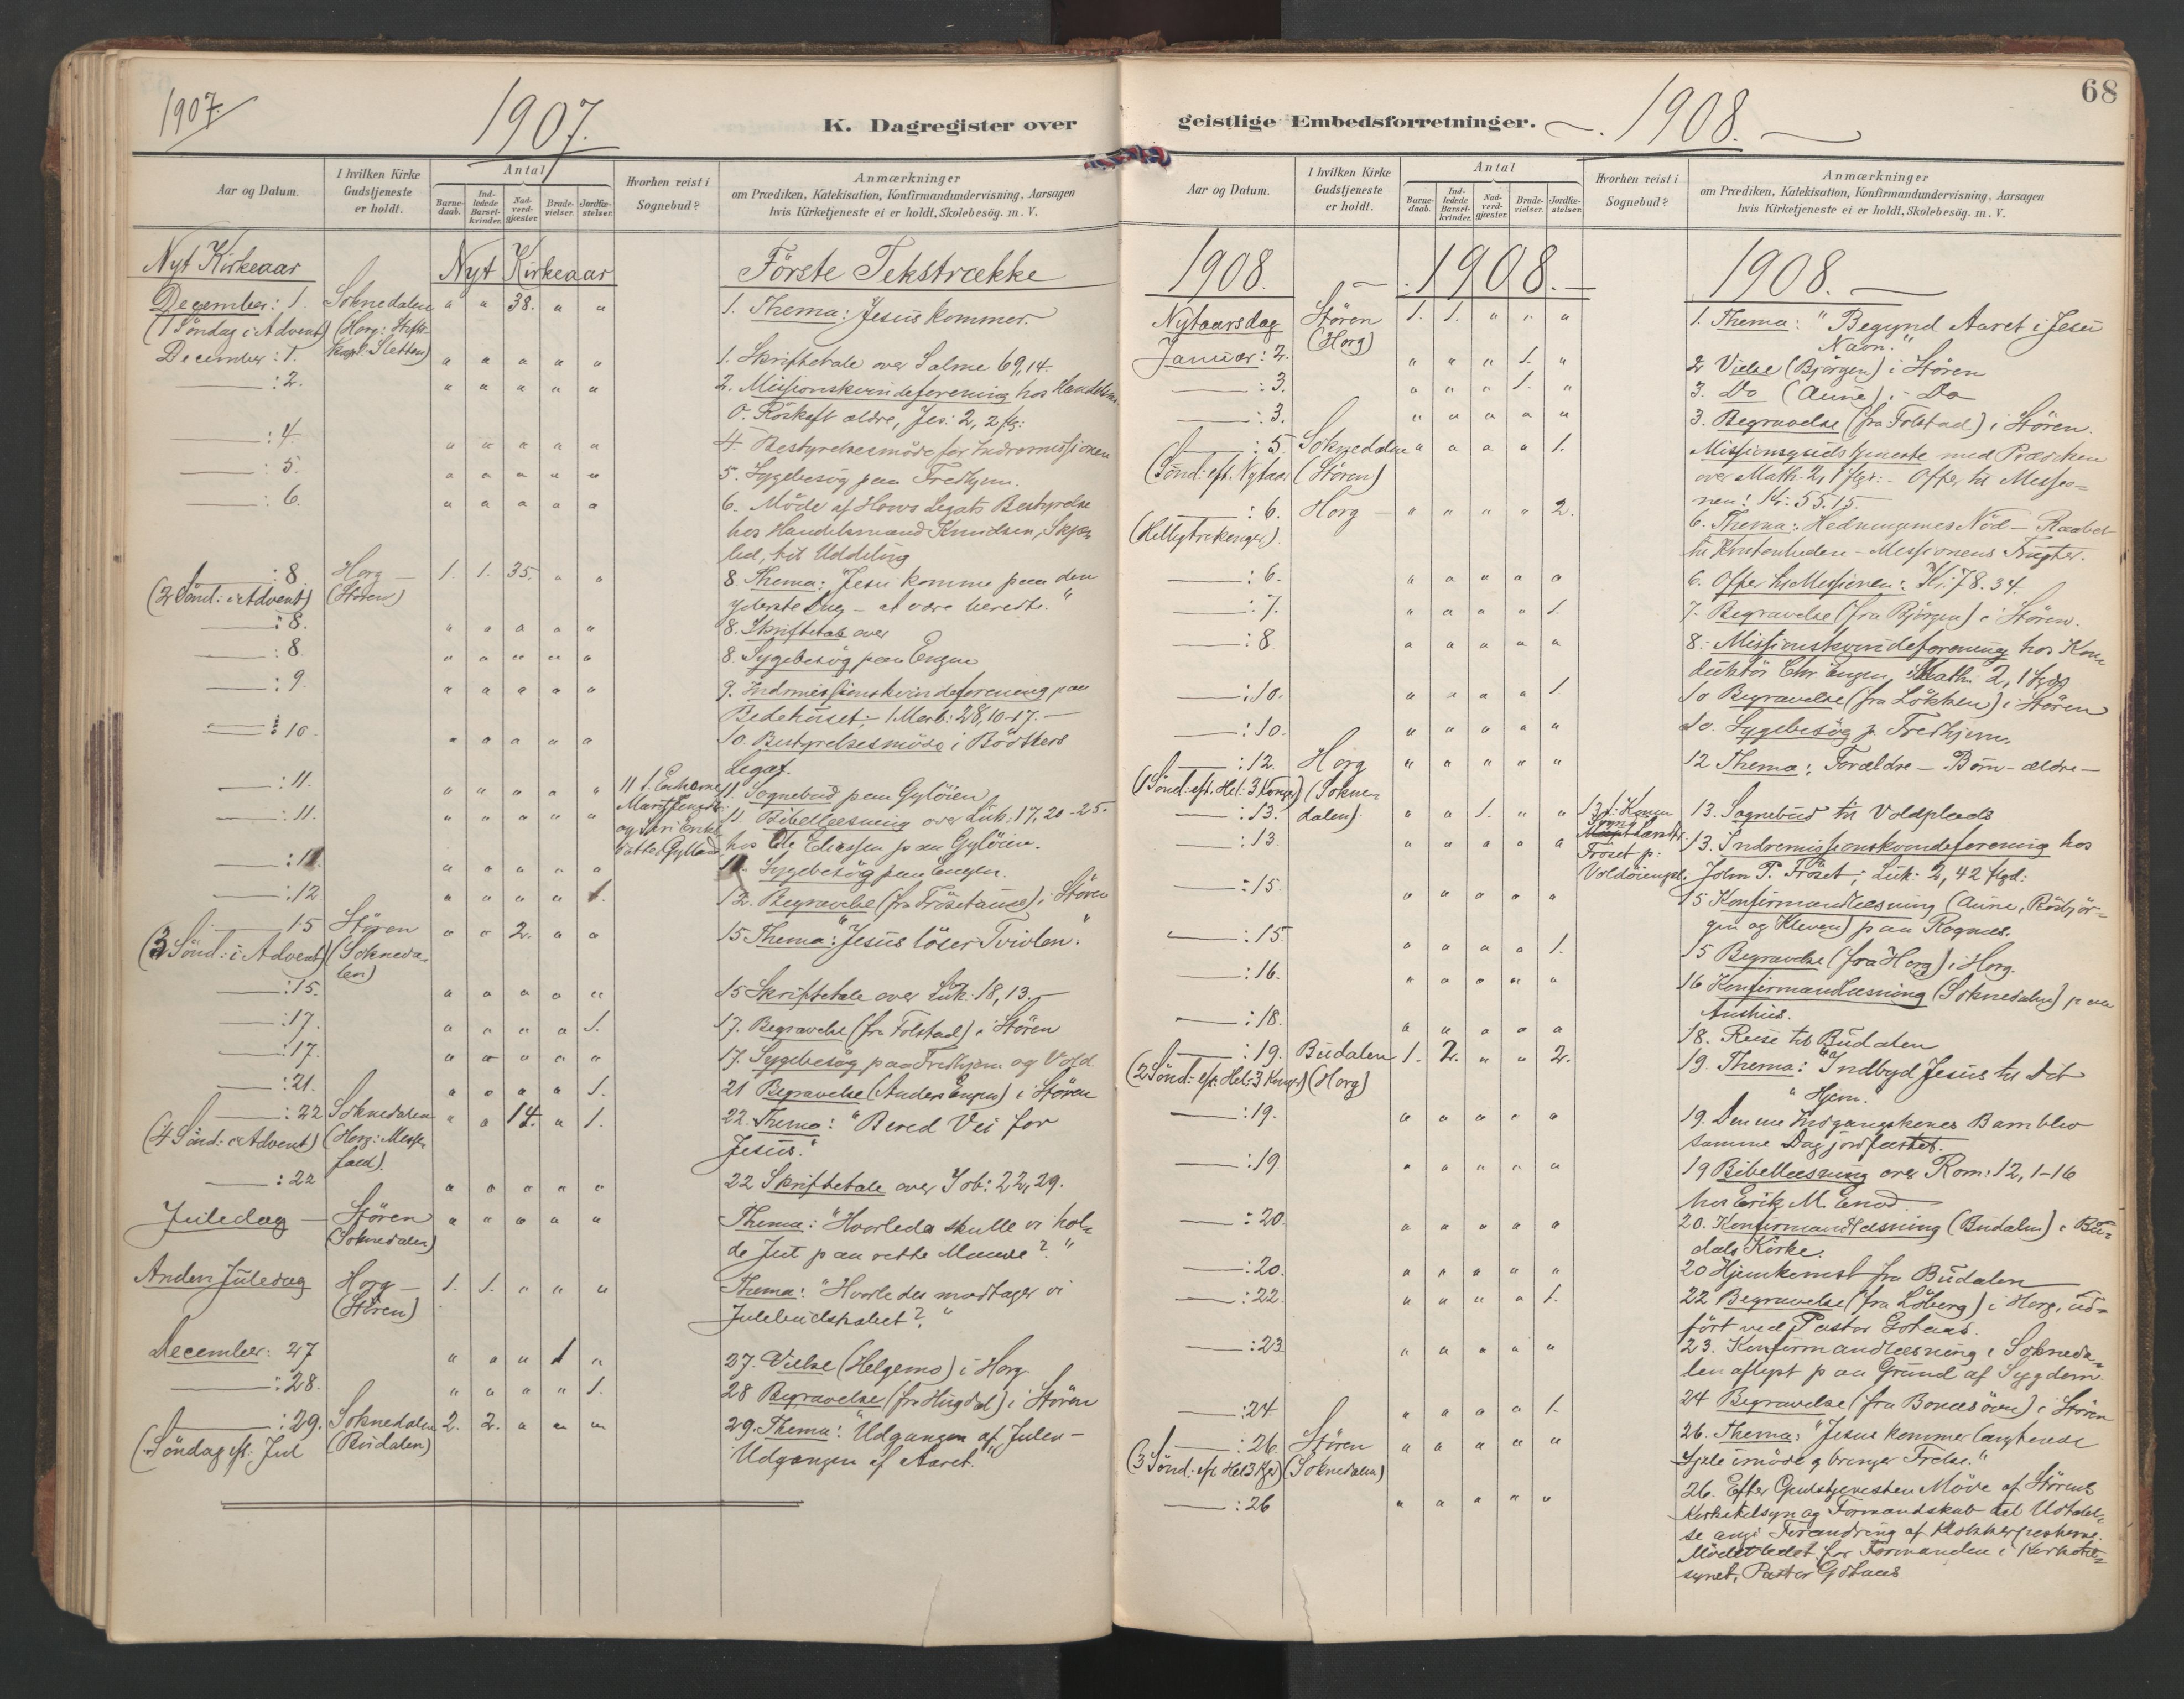 1907.
1907.
K. Dagregister over
Aar og Datum.
I hvilken Kirke
Gudstjeneste
er holdt.
Antal
Barne-
daab.
Ind-
ledede
Barsel-
kvinder.
Nad-
verd-
gjæster.
Brude-
vielser.
Jordfæ-
stelser.
Hvorhen reist i
Sognebud?
Anmærkninger
om Prædiken, Katekisation, Konfirmandundervisning, Aarsagen
hvis Kirketjeneste ei er holdt, Skolebesög. m. V.
Nyt Kirkeaar
Nyt Kirkeaar
Förste Tekstrække
December: 1. Soknedalen " " 38. " " 1. Thema: Jesus kommer.
(1 Söndag i Advent) (Horg: Stifts-
kapl. Sletten)
December: 1. " " " " " 1. Skriftetale over Salme 69,14.
: 2. " " " " " 2. Missionskvindeforening hos
O. Röskaft ældre, Jes. 2, 2 flg:
: 4. " " " " " 4. Bestyrelsesmöde for Indremissionen
: 5. " " " " " 5. Sygebesög paa Fredhjem.
: 6. " " " " " 6. Möde af Hovs Legats Bestyrelse
hos Handelsmand Knudsen,
til Uddeling
: 8 Horg 1. 1. 35. " " 8. Thema: "Jesu komme paa den
(2 Sönd: i Advent) (Stören) yderste Dag – at være beredte."
: 8. " " " " " 8. Skriftetale over
: 8. " " " " " 8. Sygebesög paa Engen
: 9 " " " " " 9. Indremissionskvindeforening paa
Bedehuset;
: 10 " " " " " 10. Bestyrelsesmöde i Bödtkers
Legat.
: 11. " " " " " 11. Sognebud paa Gylöien
: 11. " " " " " 11. Bibellæsning over Luk: 17, 20-25.
hos Ole Eliassen paa Gylöien.
: 11 " " " " " 11. Sygebesög paa Engen.
: 12 " " " " 1. 12. Begravelse (fra Frösetaune) i Stören
: 15 Stören " " 2. " " 15 Thema: "Jesus löser Tvivlen."
(3 Sönd: i Advent) (Sokneda-
len)
: 15. " " " " " 15 Skriftetale over Luk: 18, 13.
: 17. " " " " 1. 17. Begravelse (fra Folstad) i Stören
: 17. " " " " " 17. Sygebesög paa Fredhjem og Vold.
: 21. " " " " 1. 21 Begravelse (Anders Engen) i Stören
: 22 Soknedalen " " 14. " 1. 22. Thema: "Bered Vei for
(4 Sönd: i Advent) (Horg: Messe-
fald). Jesus."
: 22 " " " " " 22 Skriftetale over Job: 22, 29.
Juledag Stören " " " " " Thema: "Hvorledes skulle vi hol-
(Soknedalen) de Jul paa rette Maade?"
Anden Juledag Horg 1. 1. " " " Thema: "Hvorledes modtager vi
(Stören) Julebudskabet?"
December: 27 " " " 1 " 27. Vielse (Helgemo) i Horg.
: 28. " " " " 1. 28 Begravelse (fra Hugdal) i Stören
: 29. Soknedalen 2. 2. " " " 29. Thema: "Udgangen af Julen –
(Söndag eft: Jul (Budalen) Udgangen af Aaret."
68
geistlige Embedsforretninger. 1908.
Aar og Datum.
I hvilken Kirke
Gudstjeneste
er holdt.
Antal
Barne-
daab.
Ind-
ledede
Barsel-
kvinder.
Nad-
verd-
gjæster.
Brude-
vielser.
Jordfæ-
stelser.
Hvorhen reist i
Sognebud?
Anmærkninger
om Prædiken, Katekisation, Konfirmandundervisning, Aarsagen
hvis Kirketjeneste ei er holdt, Skolebesög. m. V.
1908. 1908. 1908.
Nytaarsdag Stören 1. 1. " " " 1. Thema: "Begynd Aaret i Jesu
(Horg) Navn."
Januar: 2. " " " 1. " 2 Vielse (Bjørgen) i Stören
: 3. " " " 1. " 3. Do (Aune) i Do
: 3. " " " " " 3. Begravelse (fra Folstad) i Stören.
: 5 Soknedalen " " " " 1. Missionsgudstjeneste med Prædiken
(Sönd: eft. Nytaar (Stören) over Math. 2, 1 flgt: - Offer til Missio-
nen: Kr: 55.15.
: 6. Horg " " " " 2. 6. Thema: Hedningernes Nöd – Raabet
(Helligtrekonger). til Kristenheden – Missionens Frugter.
: 6. " " " " " 6. Offer til Missionen: Kr: 78.34.
: 7. " " " " 1. 7. Begravelse (fra Bjørgen) i Stören.
: 8 " " " " " 8. Missionskvindeforening hos Kon-
duktör Chr. Engen, Math. 2, 1 flgd
: 10. " " " " 1. 10 Begravelse (fra Lökken) i Stören
: 10. " " " " " 10. Sygebesög p. Fredhjem.
: 12. Horg " " " " " 12 Thema: Forældre – Börn – ældre –
(1 Sönd: eft. Hel: 3 Konger) (Sokne-
dalen)
: 13. " " 1. " " 13. Sognebud til Voldplads
: 13 " " " " " 13. Indremissionskvindeforening hos
John P. Fröset; Luk: 2, 42 flgd:
: 15. " " " " " 15 Konfirmandlæsning (Aune, Rösbjör-
gen og Kleven) paa Rognes.
: 15 " " " " 1. 15 Begravelse (fra Horg) i Horg.
: 16. " " " " " 16 Konfirmandlæsning (Soknedalen) paa
: 18. " " " " " 18. Reise til Budalen
: 19. Budalen 1. 2. " " 2. 19. Thema: "Indbyd Jesus til Dit
(2 Sönd: eft: Hel: 3 Konger) (Horg) Hjem."
: 19. " " " " " 19. Den ene Indgangskones Barn blev
samme Dag jordfæstet.
: 19 " " " " " 19 Bibellæsning over Rom: 12, 1-16
hos Erik M. Enod.
: 20. " " " " " 20. Konfirmandlæsning (Budalen) i Bu-
dals Kirke.
: 20. " " " " " 20 Hjemkomst fra Budalen
: 22. " " " " 1. 22 Begravelse (fra Löberg) i Horg, ud-
fört ved Pastor Gotaas.
: 23. " " " " " 23. Konfirmandlæsning i Sokneda-
len aflyst paa Grund af Sygdom.
: 24. " " " " 1. 24 Begravelse (fra Bonesöien) i Stören
: 26. Stören " " " " " 26. Thema: "Jesus kommer længtende
(3 Sönd: eft Hel 3 Kgr) (Soknedalen) Sjæle imöde og bringer Frelse."
: 26 " " " " " 26. Efter Gudstjenesten Möde af Störens
Kirketilsyn og Formandskab til Udtalel-
se ang: Forandring af
Mödet ledet for Formanden i Kirketil-
synet, Pastor Gotaas